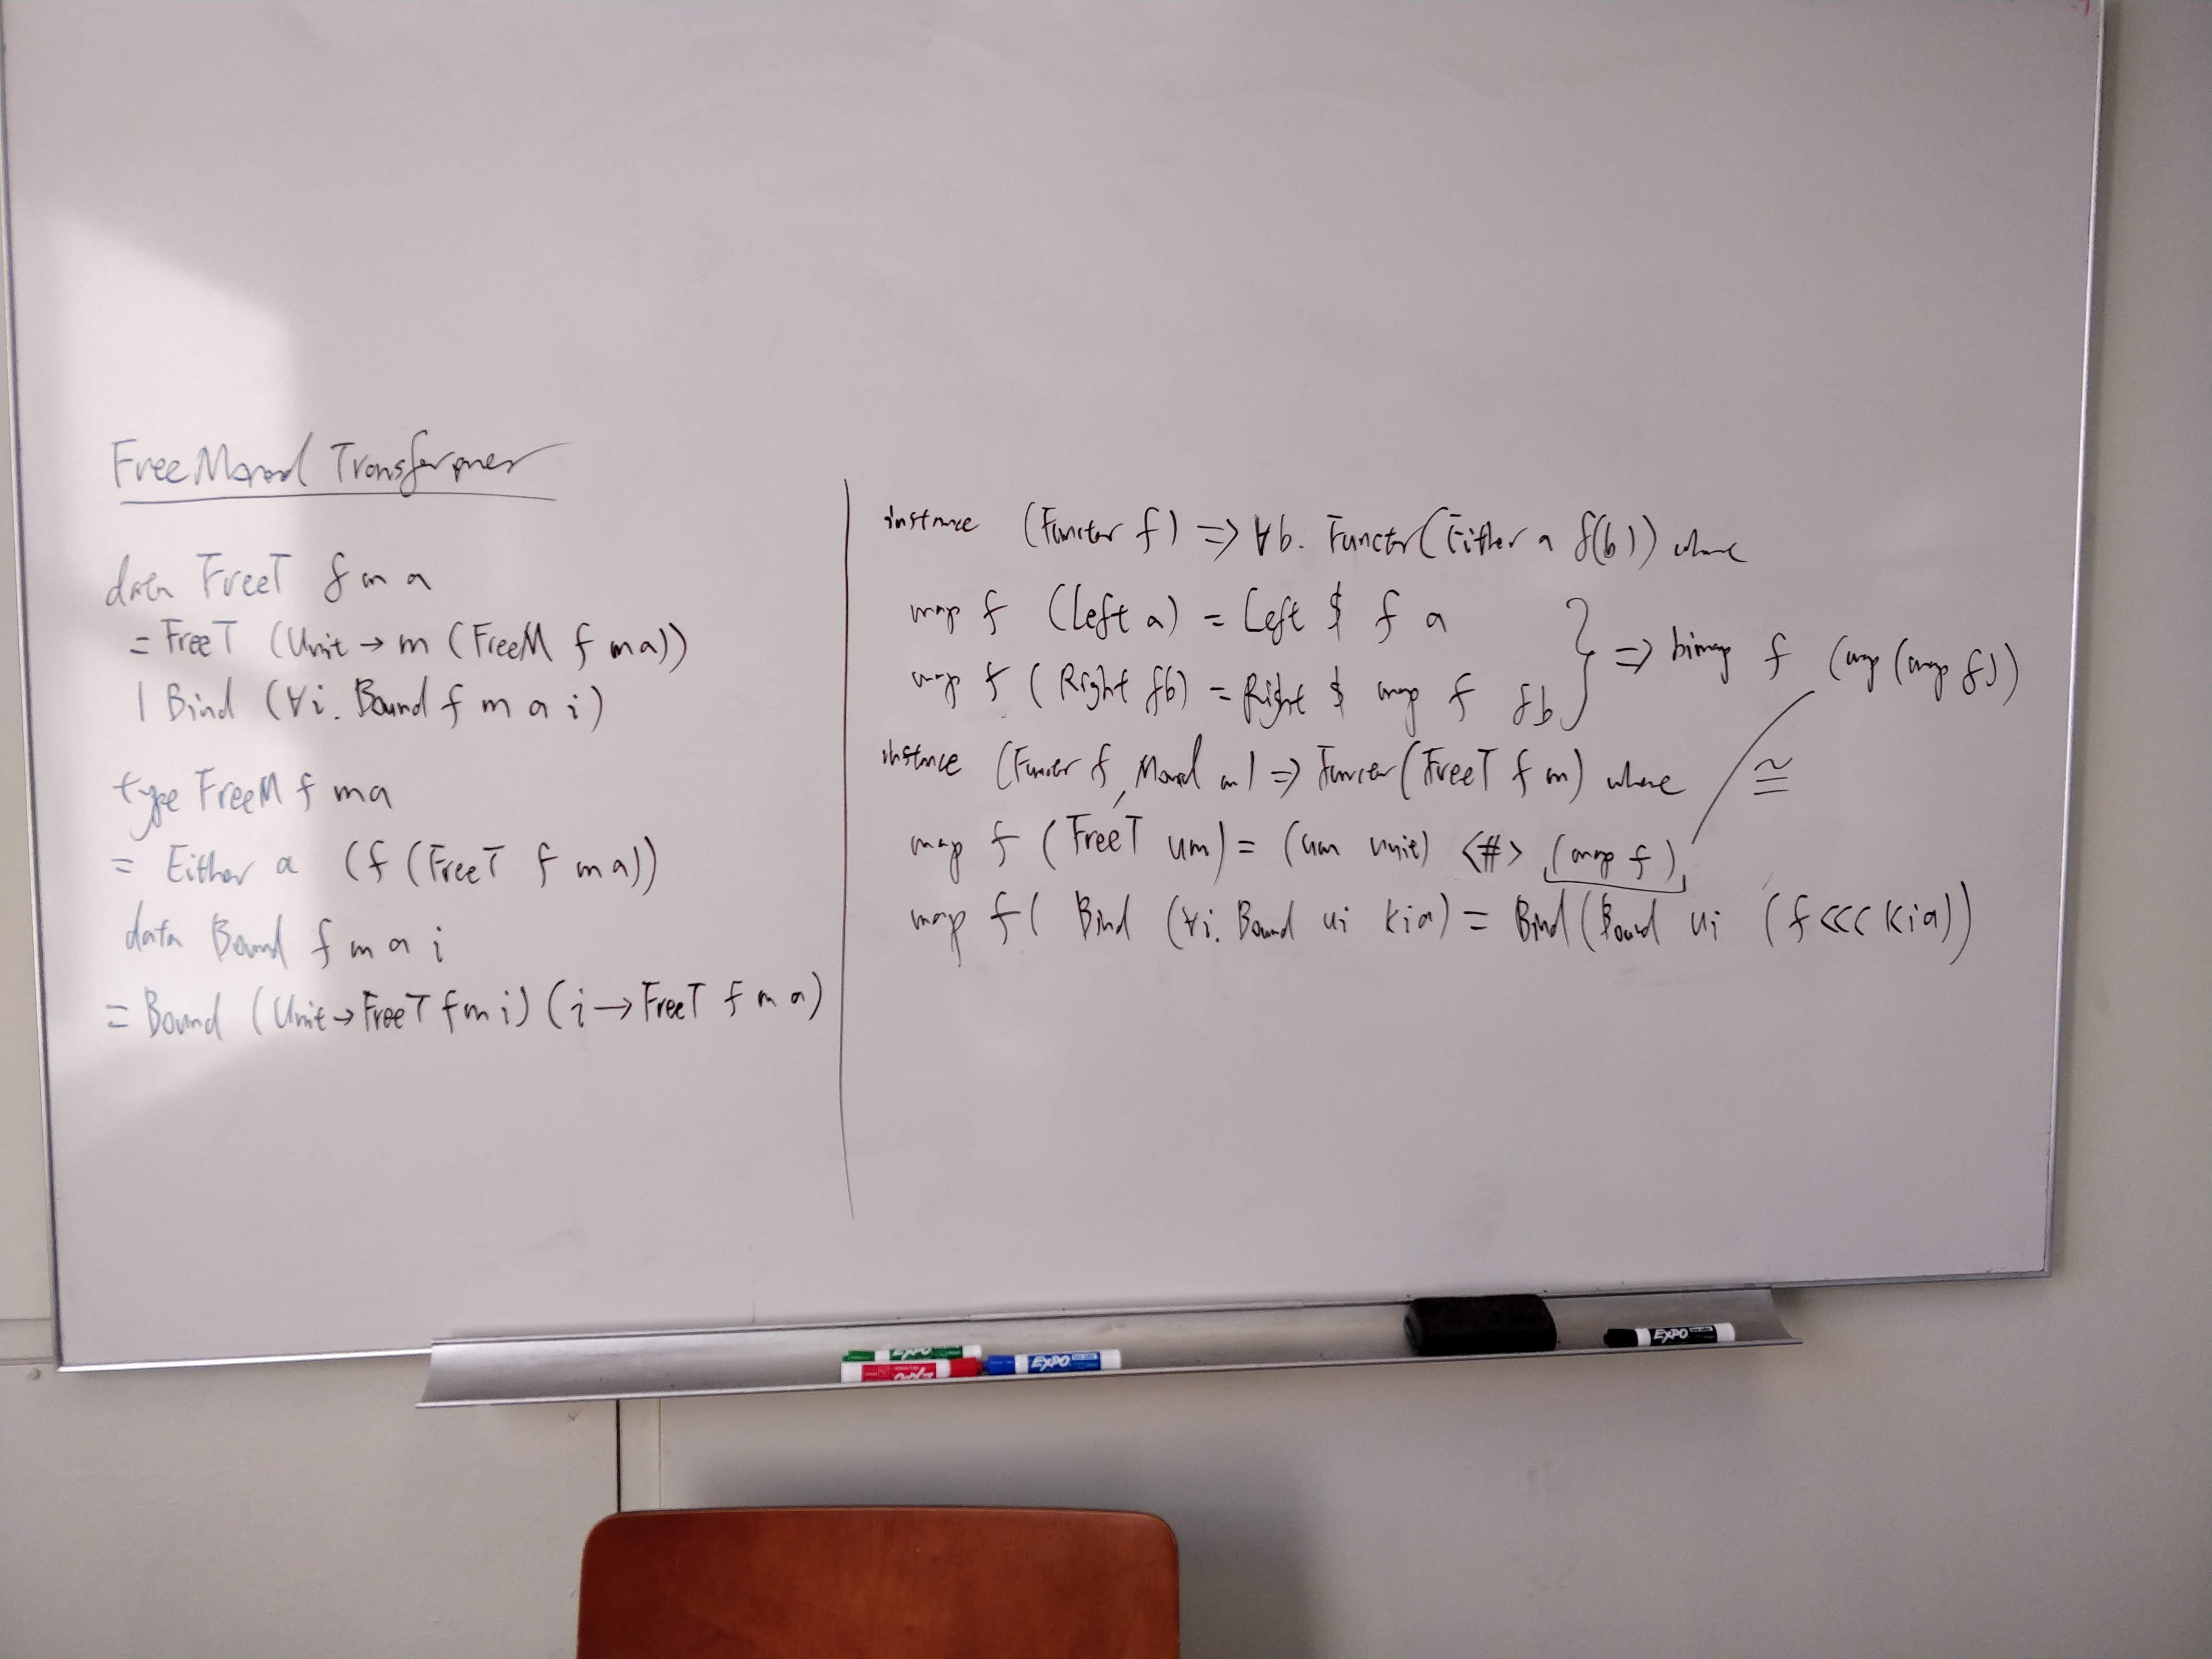 Free Monad Transformer
data FreeT f m a
= FreeT (Unit → m (FreeM f m a))
| Bind (∀i. Bound f m a i)
type FreeM f m a
= Either a (f (FreeT f m a))
data Bound f m a i
= Bound (Unit → FreeT f m i) (i → FreeT f m a)
instance (Functor f) => ∀b. Functor (Either a f(b)) where
map f (Left a) = Left $ f a
map f (Right fb) = Right $ map f fb
} => bimap f (map (map f))
instance (Functor f, Monad m) => Functor (FreeT f m) where
≅
map f (FreeT um) = (um unit) <#> (map f)
map f ( Bind (∀i. Bound ui kia) = Bind (Bound ui (f <<< kia))
EXPO
EXPO
EXPO
EXPO